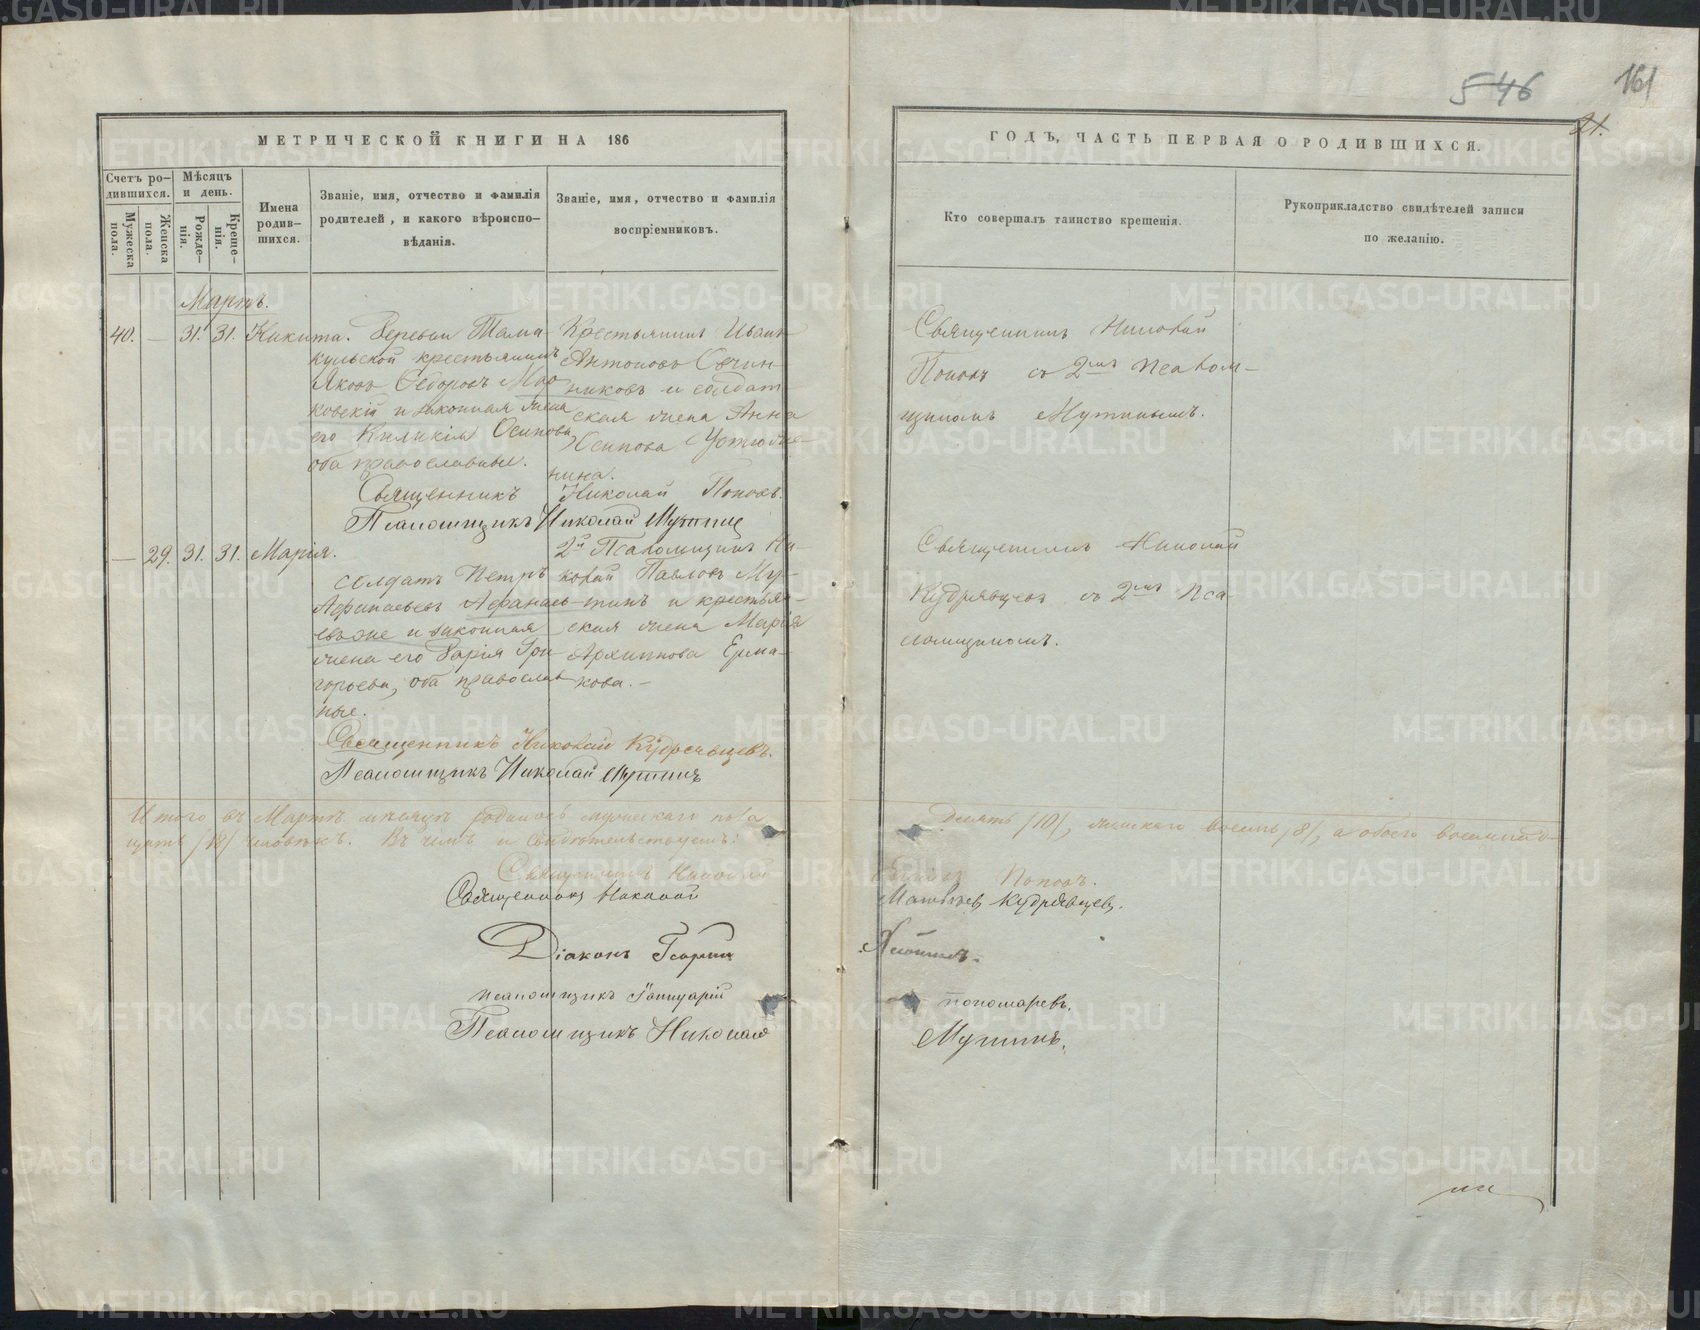 546
161
21.
МЕТРИЧЕСКОЙ КНИГИ НА 186
ГОДЪ, ЧАСТЬ ПЕРВАЯ О РОДИВШИХСЯ.
Счетъ ро-
дившихся.
Мужеска
пола.
Женска
пола.
Мѣсяцъ
и день.
Рожде-
нія.
Креще-
нія.
Имена
родив-
шихся.
Званіе, имя, отчество и фамилія
родителей, и какого вѣроиспо-
вѣданія.
Званіе, имя, отчество и фамилія
воспріемниковъ.
Кто совершалъ таинство крещенія.
Рукоприкладство свидѣтелей записи
по желанію.
Мартъ.
40. — 31. 31. Никита.
Деревни Тама-
кульской крестьянинъ
Яковъ Ѳедоровъ Мар-
ковскій и законная жена
его Киликія Осипова,
оба православные.
Крестьянинъ Иванъ
Антоновъ Овчин-
никовъ и солдат-
ская жена Анна
Осипова Устюжа-
нина.
Священникъ Николай
Поповъ съ 2мъ Псалом-
щикомъ Мутинымъ.
Священникъ Николай Поповъ.
Псаломщикъ Николай Мутинъ
— 29. 31. 31. Марія.
Солдатъ Петръ
Афанасьевъ Афанась-
евъ же и законная
жена его Дарія Гри-
горьева, оба православ-
ные.
2й Псаломщикъ Ни-
колай Павловъ Му-
тинъ и крестьян-
ская жена Марія
Архиппова Ерма-
кова. —
Священникъ Николай
Кудрявцевъ съ 2мъ Пса-
ломщикомъ.
Священникъ Николай Кудрявцевъ.
Псаломщикъ Николай Мутинъ
Итого въ Мартѣ мѣсяцѣ родилось мужескаго пола десять /10/, женскаго восемь /8/, а обоего восемнад-
цать /18/ человѣкъ. Въ чемъ и свидѣтельствуемъ:
Священникъ Николай Поповъ.
Священникъ Николай Матвѣевъ Кудрявцевъ.
Діаконъ Георгій
Псаломщикъ Іаннуарій Пономаревъ.
Псаломщикъ Николай Мутинъ.
METRIKI.GASO-URAL.RU